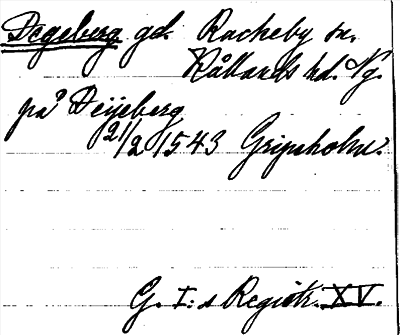 Degeberg gd. Racheby sn.
Kållands hd. Vg.
på Deijeberg
21/2 1543 Gripsholm.
G. I:s Registr. XV.